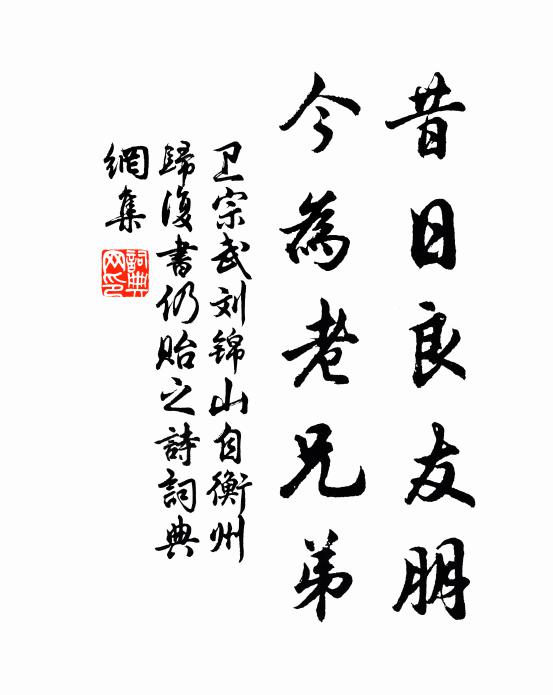 昔日良友朋
今為老兄弟
卫宗武刘锦山自衡州
歸復書仍貽之詩詞典
網集
詞典网印